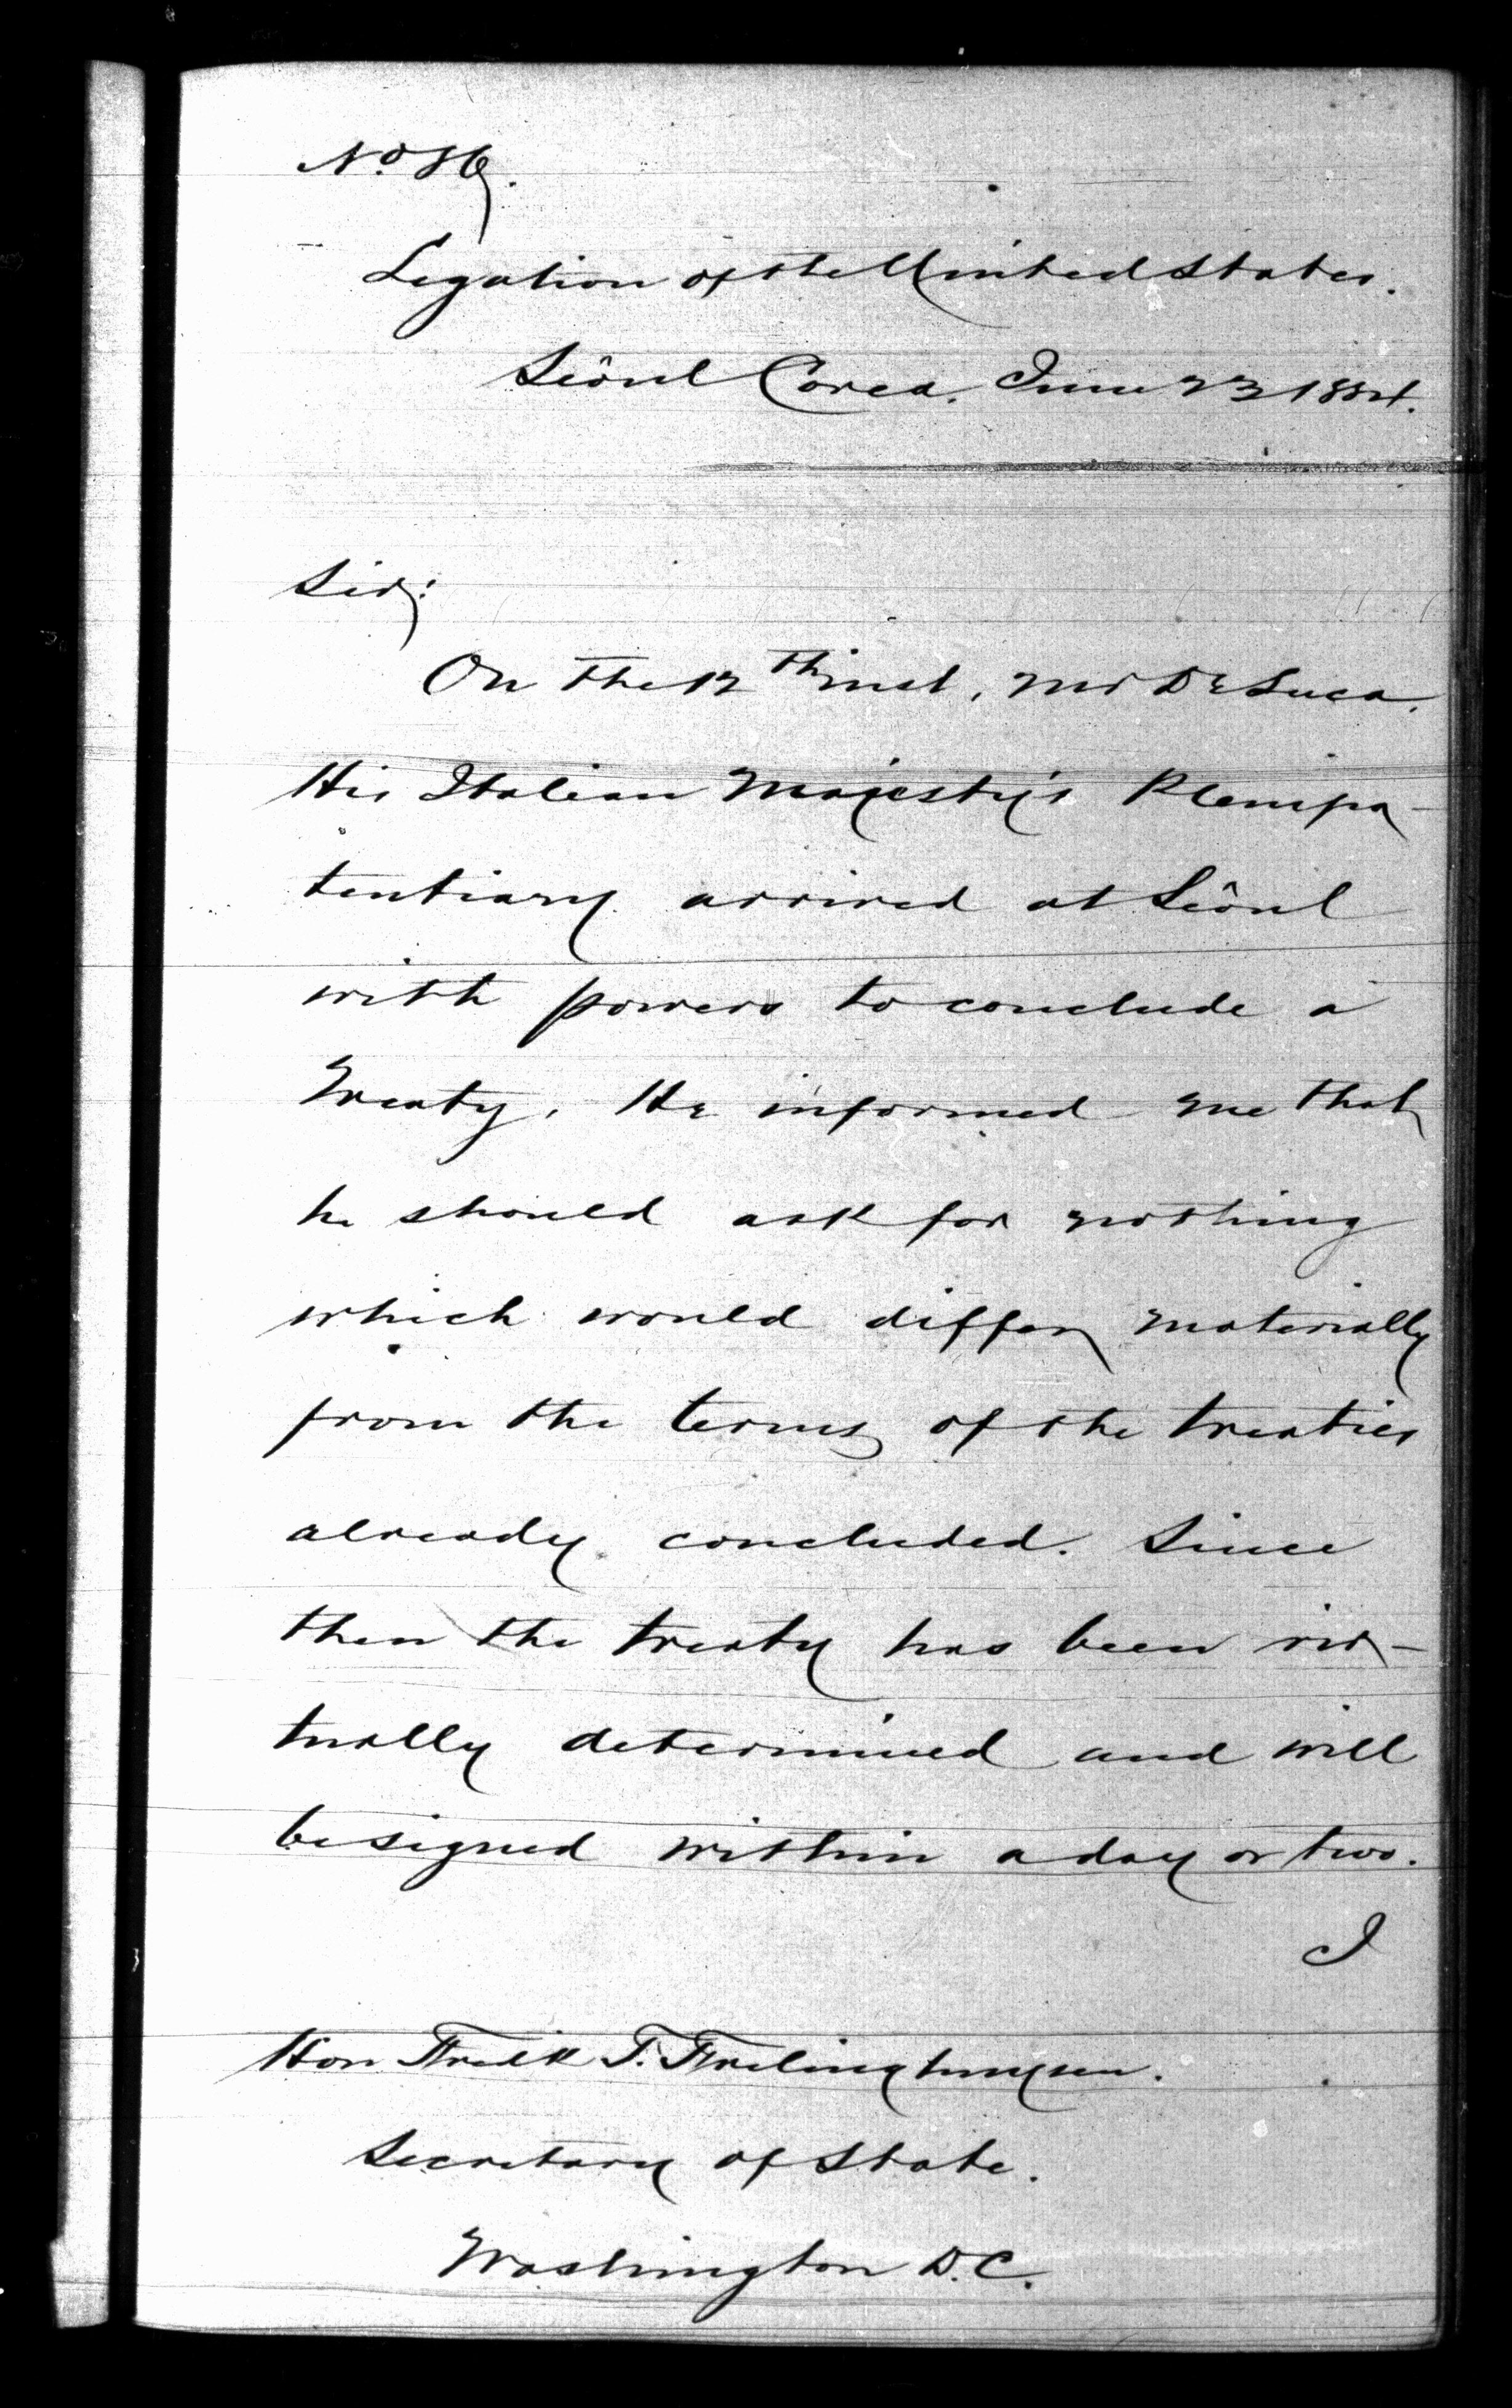 No. 86.
Legation of the United States.
Seôul Corea. June 23 1884.
Sir:
On the 12th inst, Mr De Luca,
His Italian Majesty's Plenipo-
tentiary arrived at Seôul
with powers to conclude a
Treaty. He informed me that
he should ask for nothing
which would differ materially
from the terms of the treaties
already concluded. Since
then the treaty has been vir-
tually determined and will
be signed within a day or two.
I
Hon Fredk T. Frelinghuysen.
Secretary of State.
Washington D.C.